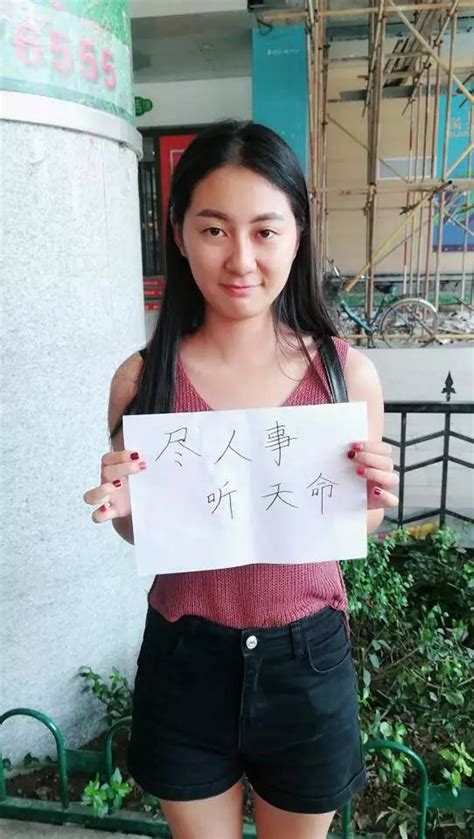 6555
尽人事
听天命